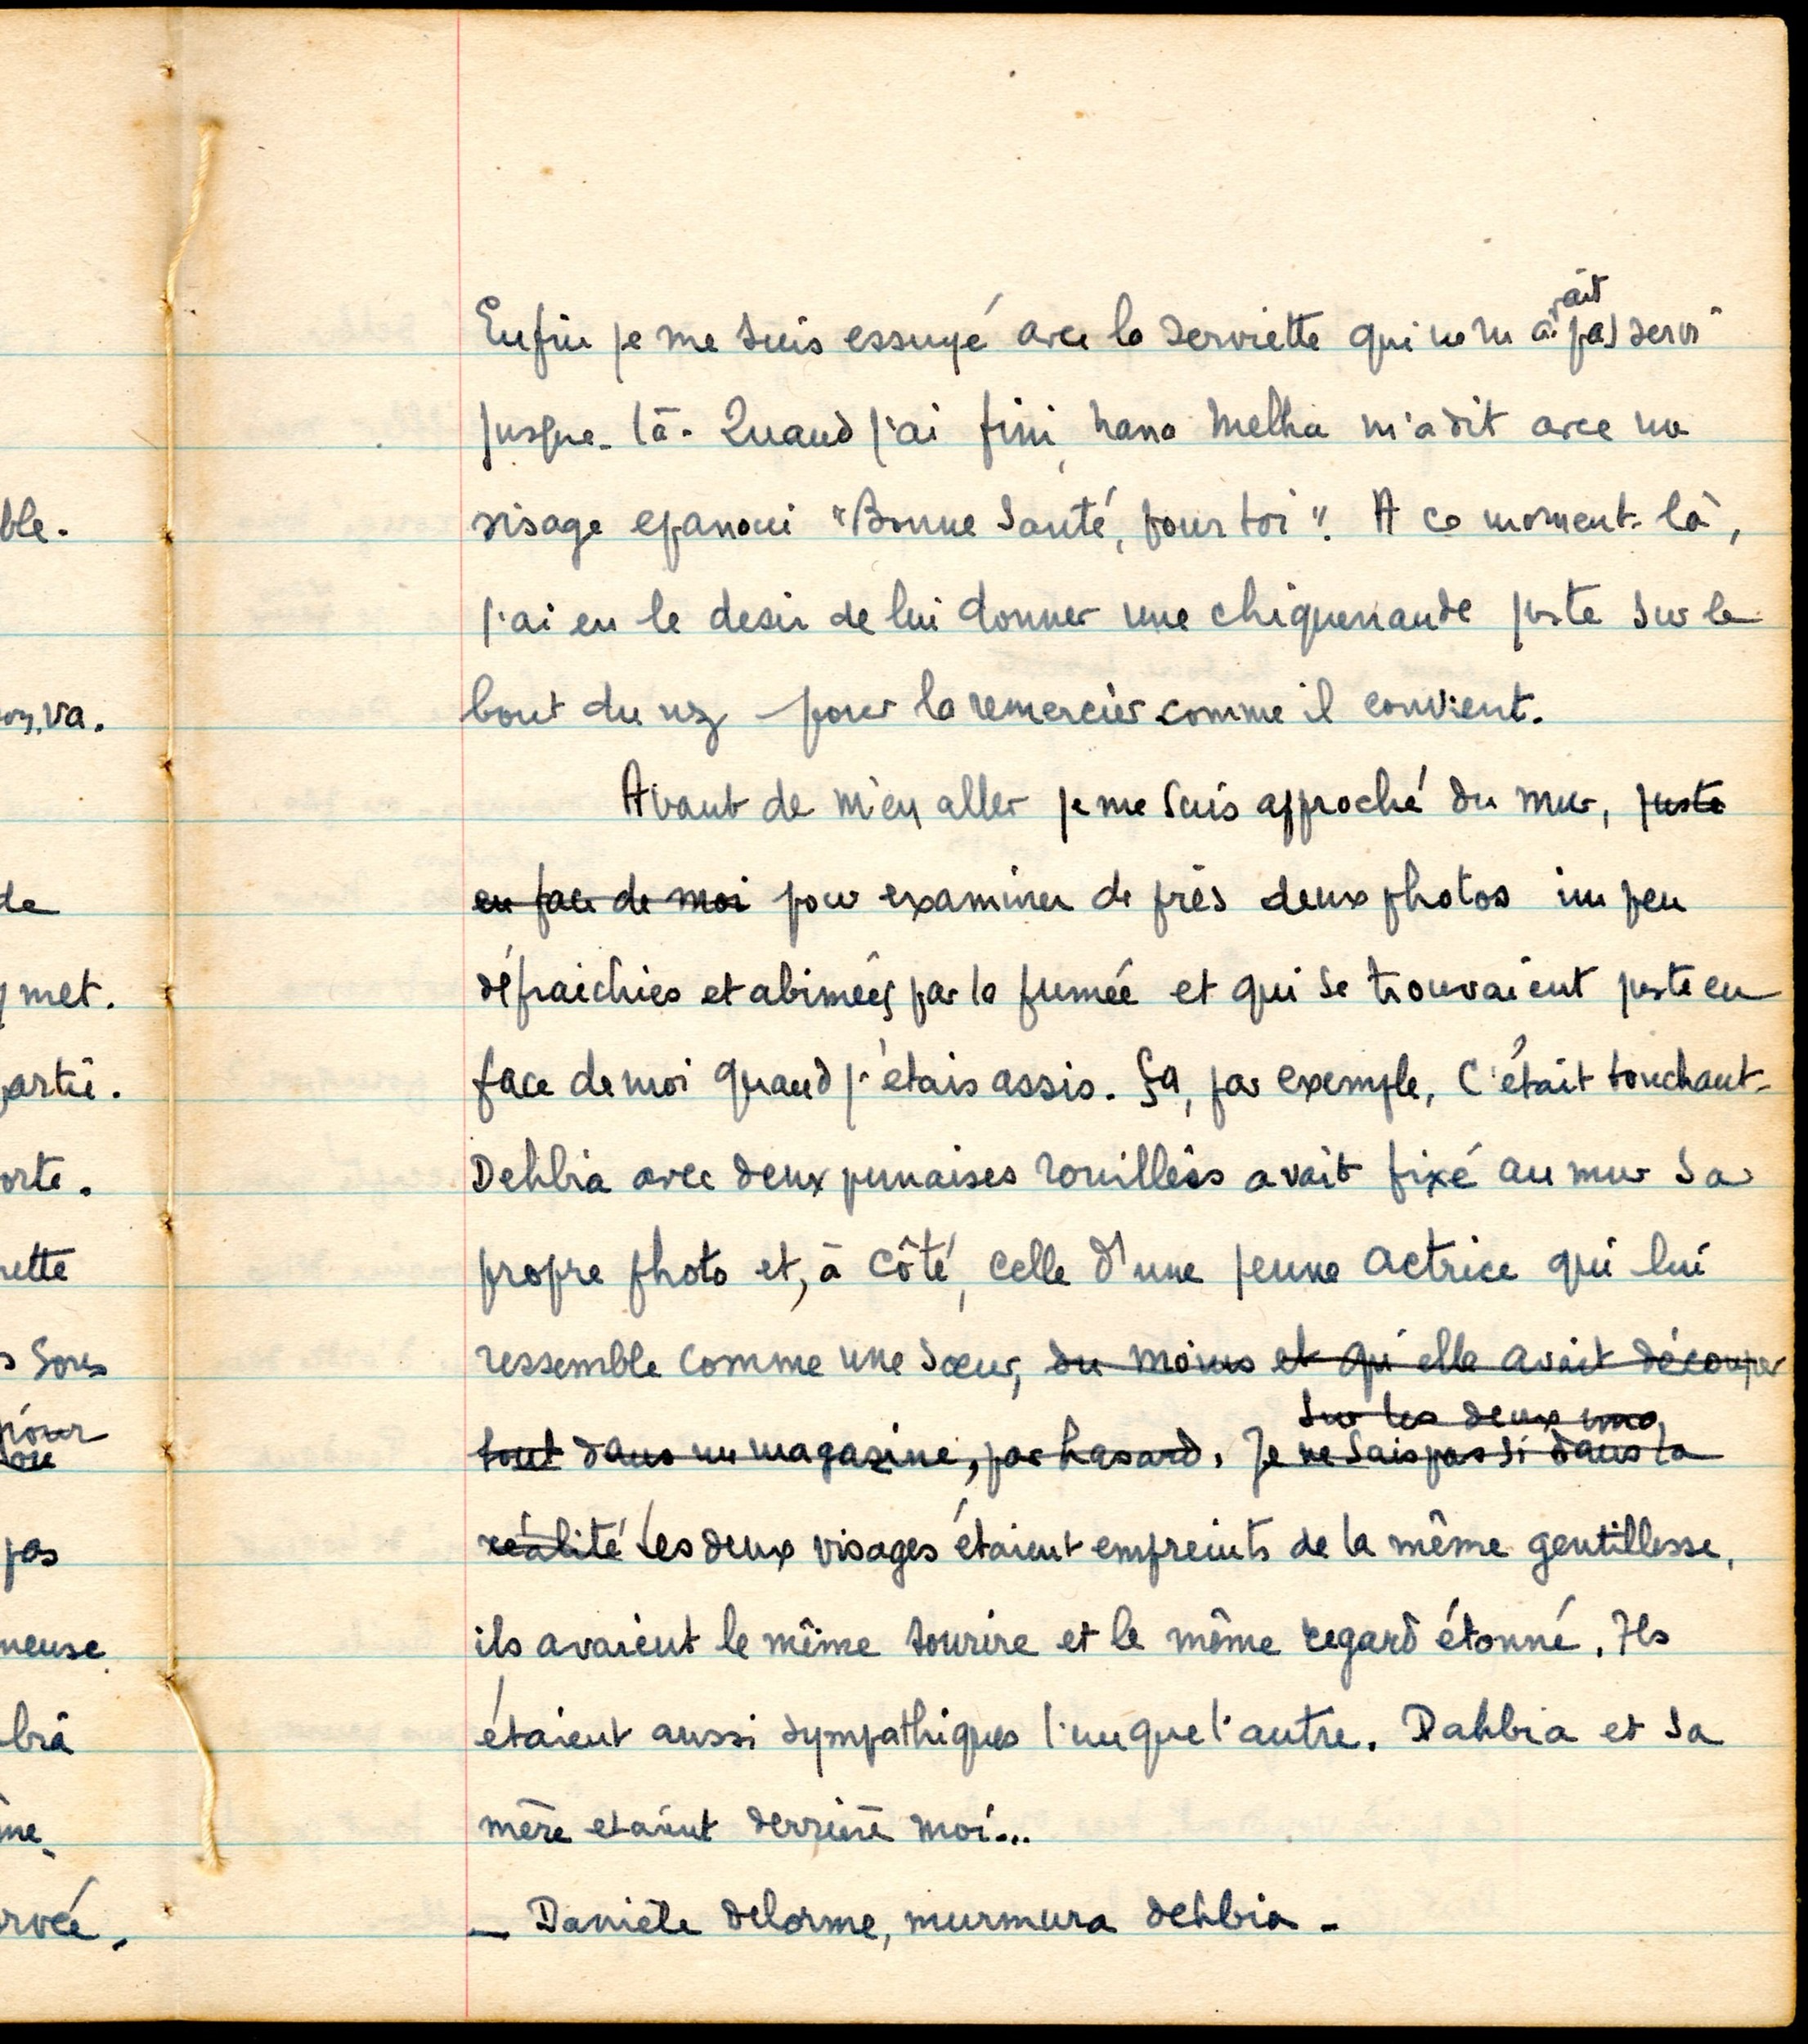 ble.
va.
de
met.
partie.
orte.
nette
s sous
pour
ou
pas
neuse
bia
me.
rvée.
ait
Enfin je me suis essuyé avec la serviette qui ne m'a pas servi
jusque-là. Quand j'ai fini, nana Melha m'a dit avec un
visage epanoui "Bonne santé, pour toi". A ce moment-là,
j'ai eu le desir de lui donner une chiquenaude juste sur le
bout du nez pour la remercier comme il convient.
Avant de m'en aller je me suis approché du mur, juste
en face de moi pour examiner de près deux photos un peu
défraichies et abimées par la fumée et qui se trouvaient juste en
face de moi quand j'étais assis. Ça, par exemple, c'était touchant.
Dehbia avec deux punaises rouillées avait fixé au mur sa
propre photo et, à côté, celle d'une jeune actrice qui lui
ressemble comme une sœur, du moins et qu'elle avait découper
sur les deux
tout dans un magazine, par hasard. Je ne sais pas si dans la
réalité Les deux visages étaient empreints de la même gentillesse,
ils avaient le même sourire et le même regard étonné. Ils
étaient aussi sympathiques l'un que l'autre. Dahbia et sa
mère etaient derrière moi...
— Danièle delorme, murmura dehbia -